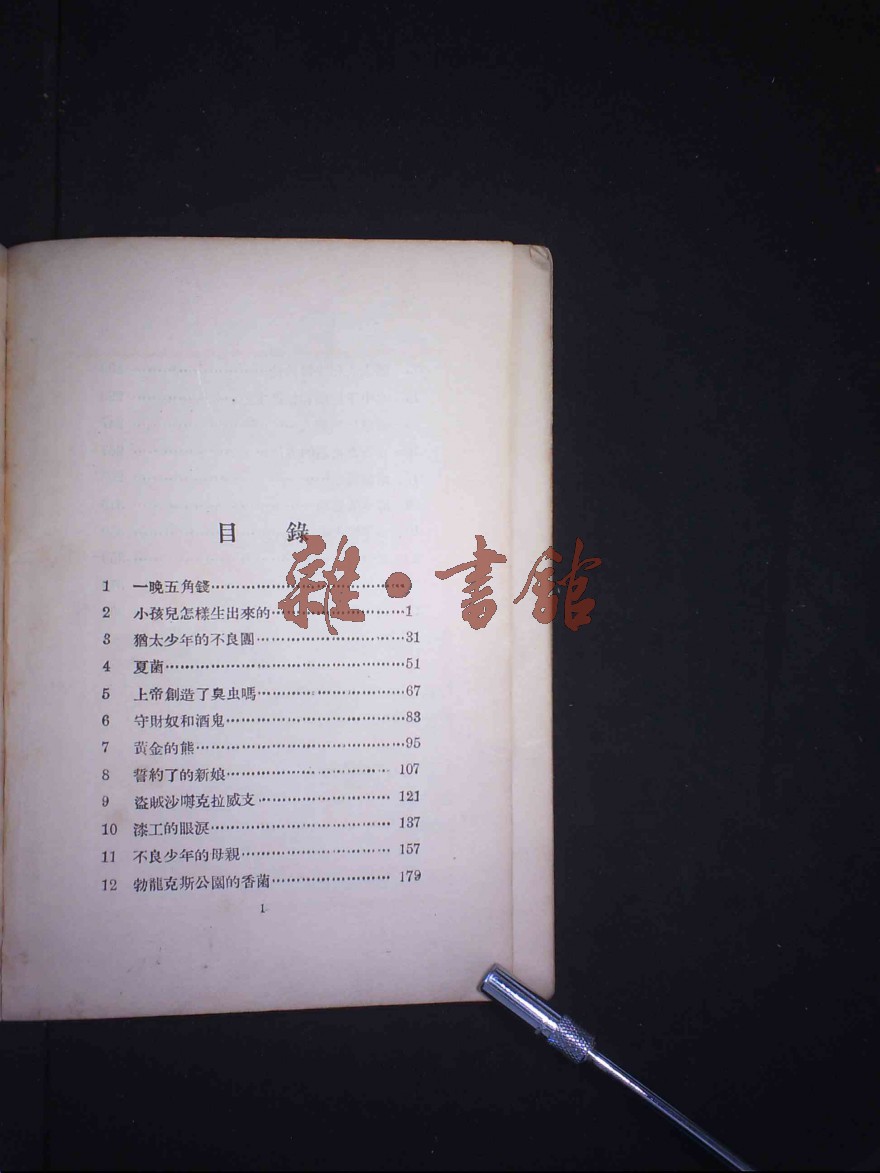 目錄
雜·書館
1 一晚五角錢……………………………
2 小孩兒怎樣生出來的……………………1
3 猶太少年的不良團……………………31
4 夏菌……………………………………51
5 上帝創造了臭虫嗎……………………67
6 守財奴和酒鬼…………………………83
7 黃金的熊………………………………95
8 誓約了的新娘…………………………107
9 盜賊沙嘐克拉威支……………………121
10 漆工的眼淚……………………………137
11 不良少年的母親………………………157
12 勃龍克斯公園的香菌…………………179
1